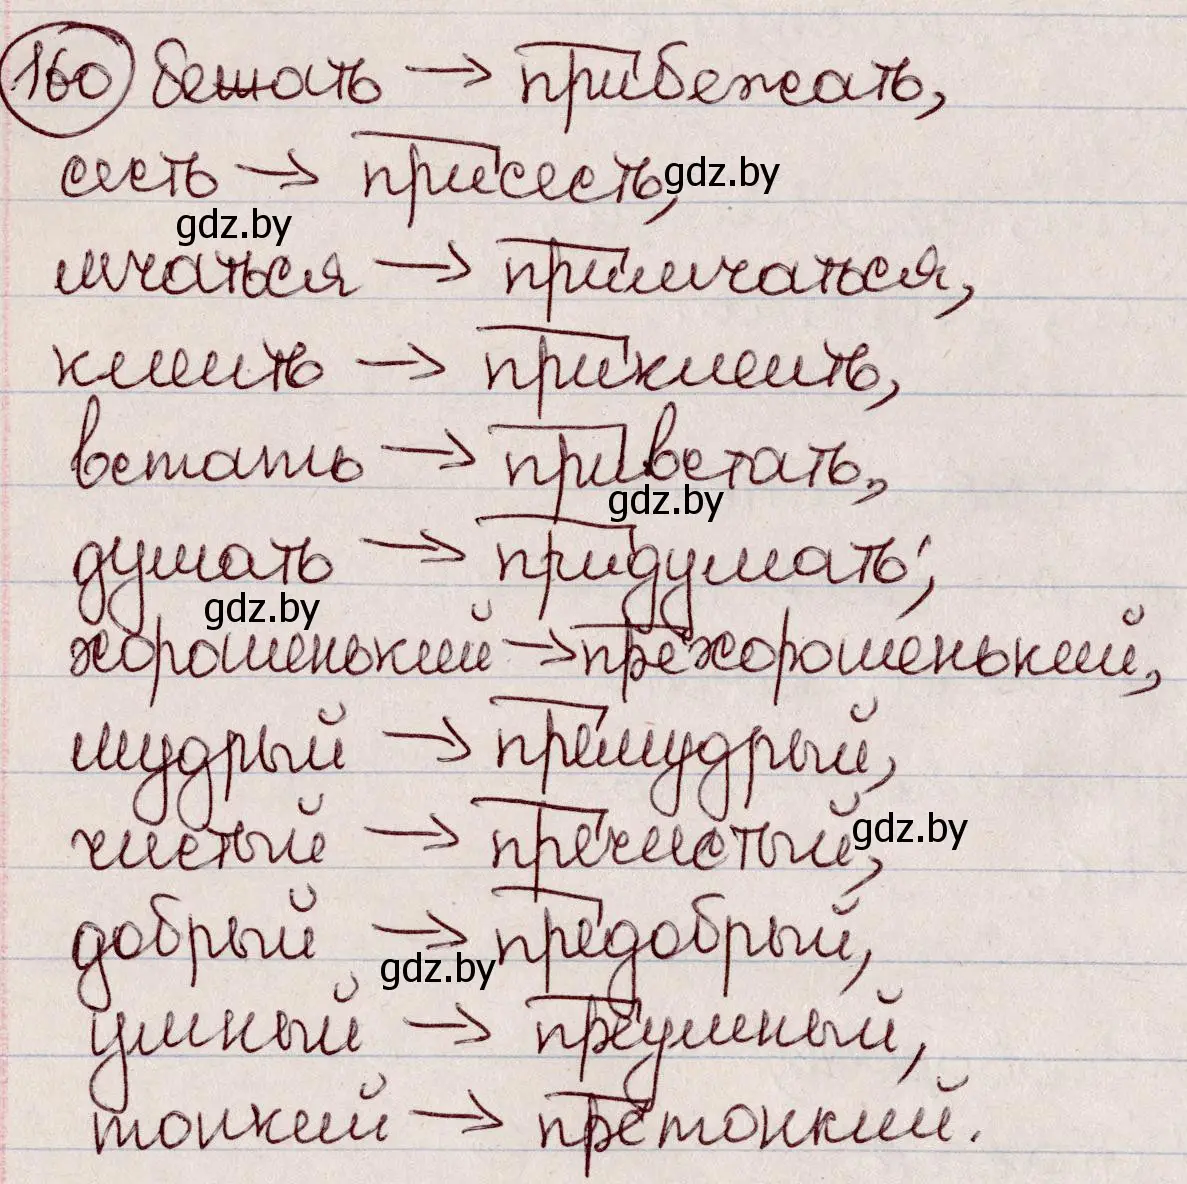 160 бежать → прибежать,
сесть → присесть, gdz.by
gdz.by
мчаться → примчаться,
клеить → приклеить,
встать → привстать,
gdz.by
думать → придумать;
gdz.by
хорошенький → прехорошенький,
мудрый → премудрый,
чистый → пречистый, gdz.by
добрый → предобрый,
gdz.by
умный → преумный,
тонкий → претонкий.